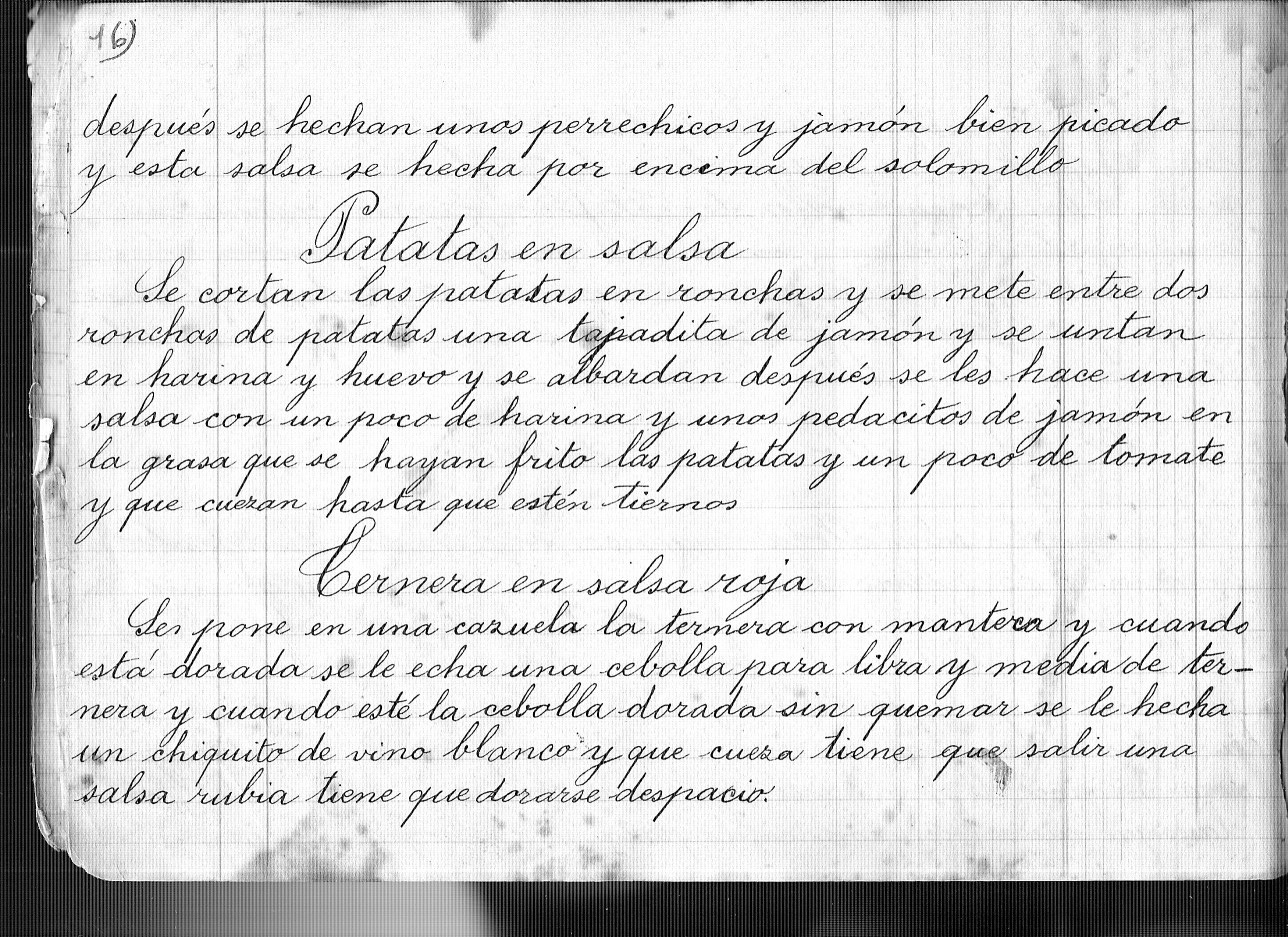 16)
después se hechan unos perrechicos y jamón bien picado
y esta salsa se hecha por encima del solomillo
Patatas en salsa
Se cortan las patatas en ronchas y se mete entre dos
ronchas de patatas una tajadita de jamón y se untan
en harina y huevo y se albardan después se les hace una
salsa con un poco de harina y unos pedacitos de jamón en
la grasa que se hayan frito las patatas y un poco de tomate
y que cuezan hasta que estén tiernos
Ternera en salsa roja
Se pone en una cazuela la ternera con manteca y cuando
está dorada se le echa una cebolla para libra y media de ter-
nera y cuando esté la cebolla dorada sin quemar se le hecha
un chiquito de vino blanco y que cueza tiene que salir una
salsa rubia tiene que dorarse despacio.